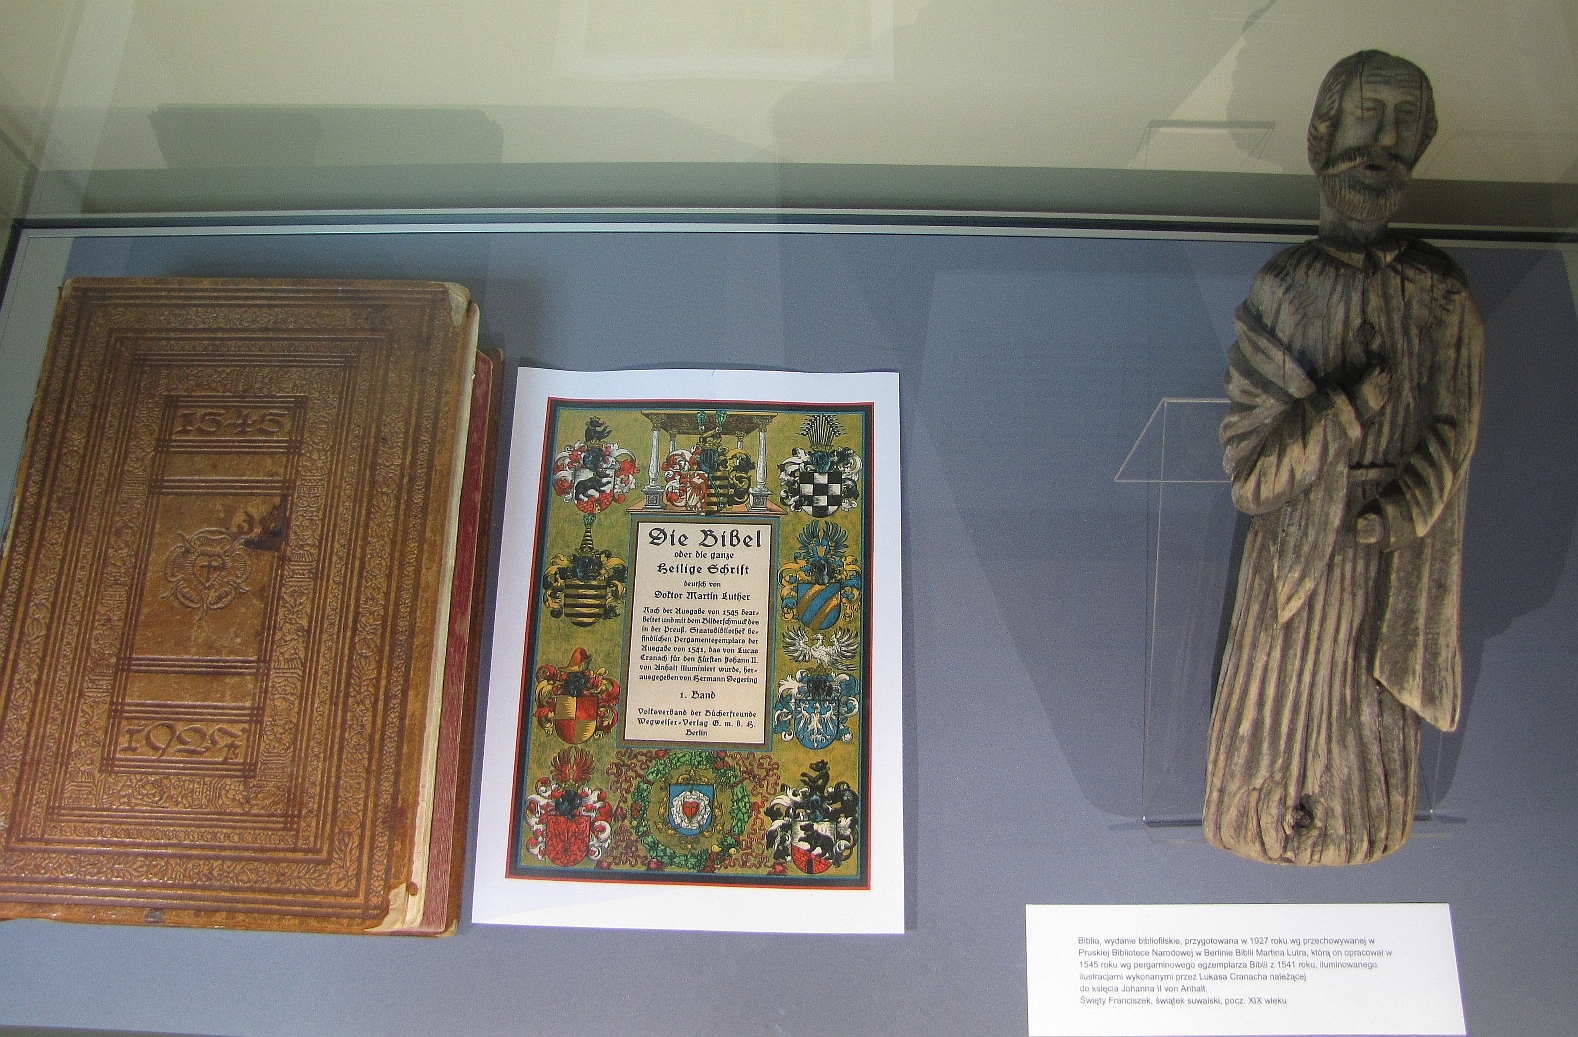 1545
1927
Die Bibel
oder die ganze
Heilige Schrift
deutsch von
Doktor Martin Luther
Nach der Ausgabe von 1545 bear-
beitet und mit dem Bilderschmuck des
in der Preuß. Staatsbibliothek be-
findlichen Pergamentexemplars der
Ausgabe von 1541, das von Lucas
Cranach für den Fürsten Johann II.
von Anhalt illuminiert wurde, her-
ausgegeben von Hermann Degering
1. Band
Volksverband der Bücherfreunde
Wegweiser-Verlag G. m. b. H.
Berlin
Biblia, wydanie bibliofilskie, przygotowana w 1927 roku wg przechowywanej w
Pruskiej Bibliotece Narodowej w Berlinie Biblii Martina Lutra, którą on opracował w
1545 roku wg pergaminowego egzemplarza Biblii z 1541 roku, iluminowanego
ilustracjami wykonanymi przez Lukasa Cranacha należącej
do księcia Johanna II von Anhalt.
Święty Franciszek, świątek suwalski, pocz. XIX wieku